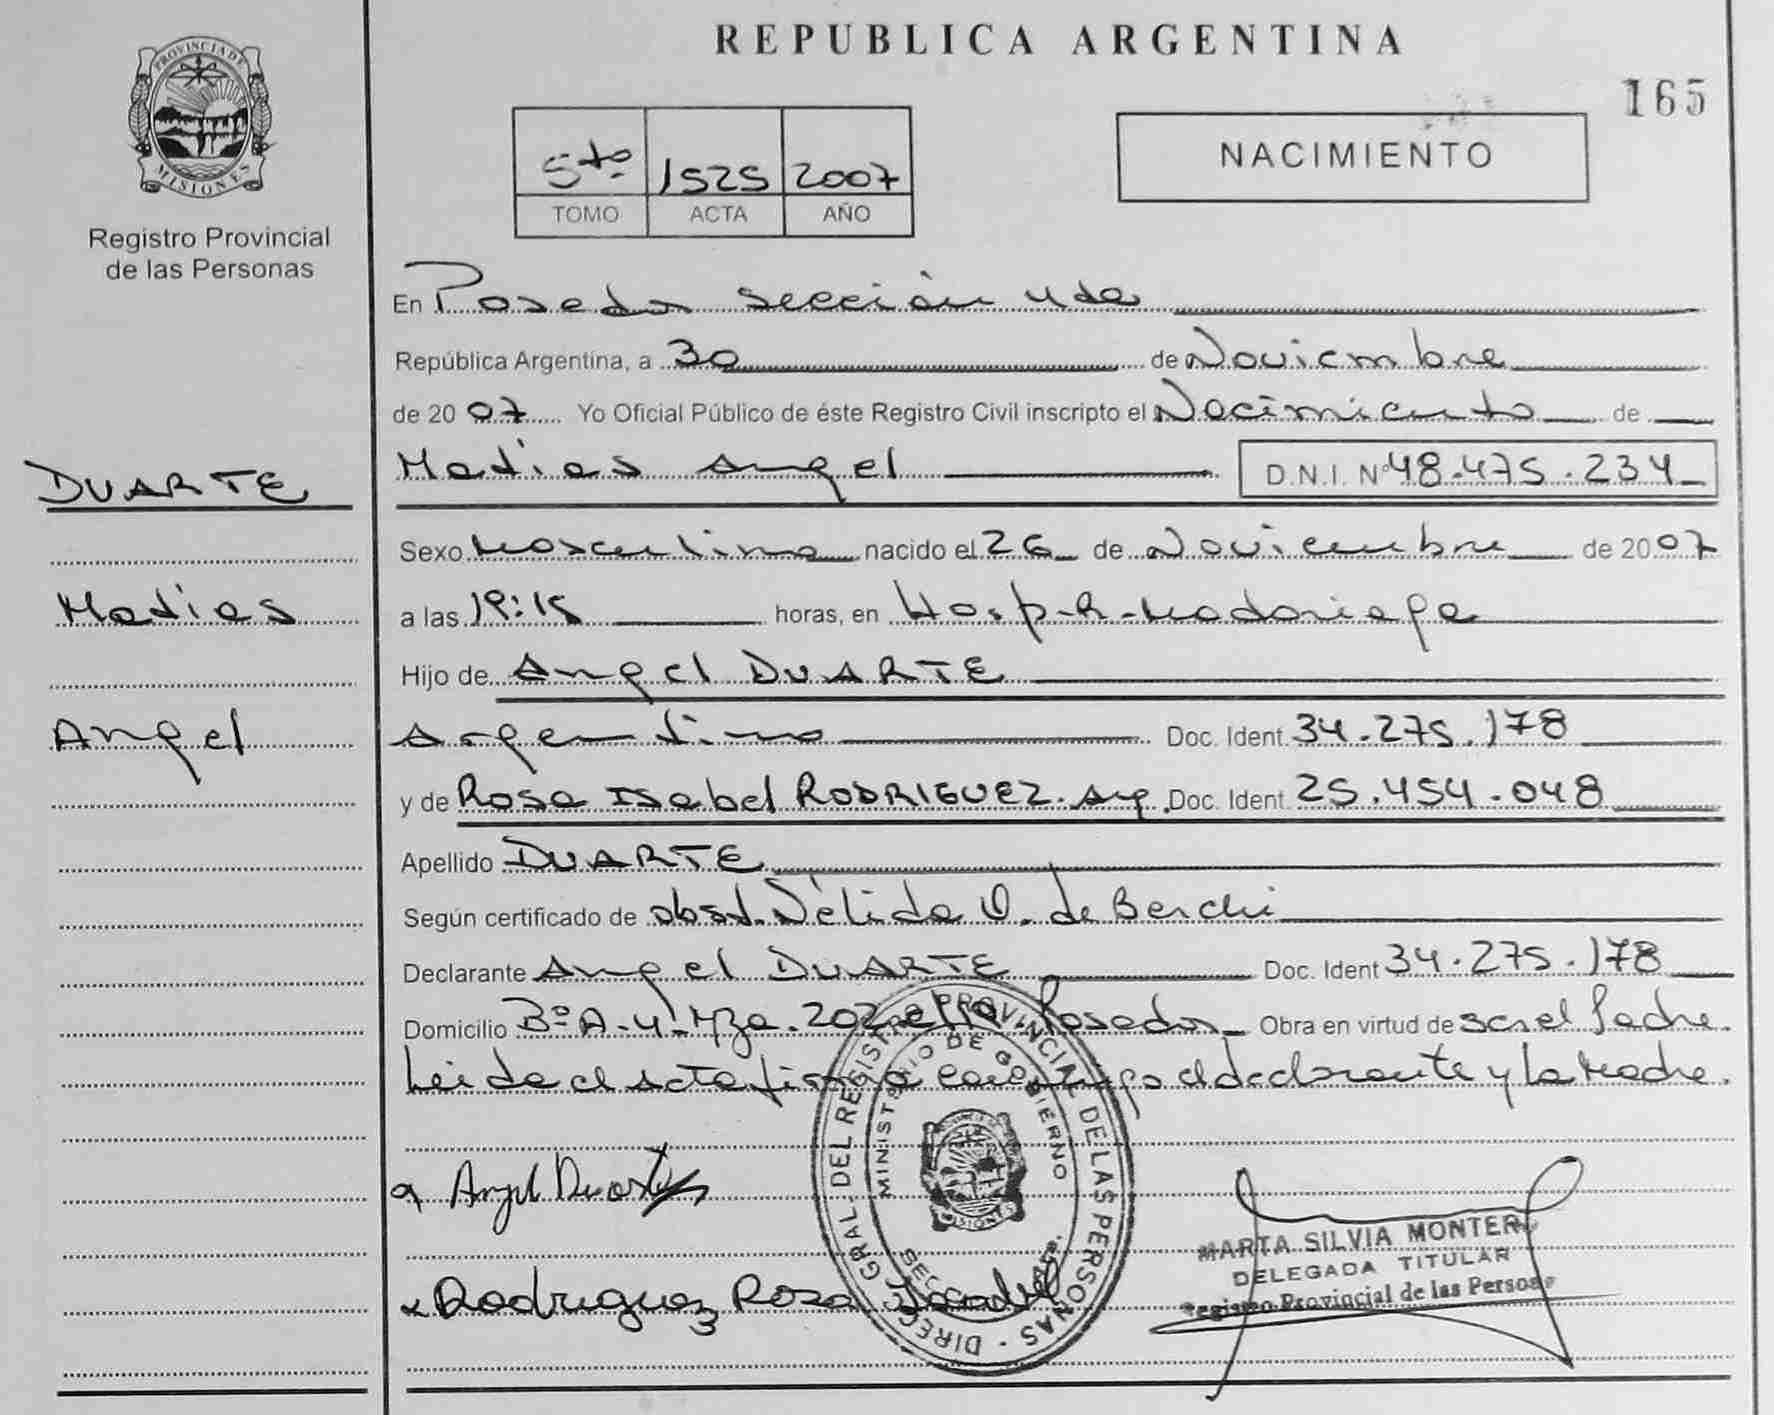 REPUBLICA ARGENTINA
165
PROVINCIA DE MISIONES
Registro Provincial
de las Personas
5to 1525 2007
TOMO ACTA AÑO
NACIMIENTO
En Posadas sección 4da
República Argentina, a 30 de Noviembre
de 2007 Yo Oficial Público de éste Registro Civil inscripto el Nacimiento de
Matias Angel D.N.I. Nº 48.475.234
DUARTE
Matias
Angel
Sexo Masculino nacido el 26 de Noviembre de 2007
a las 19:15 horas, en Hosp-R-Madariaga
Hijo de Angel DUARTE
Argentino Doc. Ident. 34.275.178
y de Rosa Isabel RODRIGUEZ. Arg. Doc. Ident. 25.454.048
Apellido DUARTE
Según certificado de obst. Délida O. de Berchi
Declarante Angel DUARTE Doc. Ident 34.275.178
Domicilio Bº A-4-Mza. 202 Posadas Obra en virtud de ser el Padre.
Leida el acta firman conmigo el declarante y la Madre.
Angel Duarte
Rodriguez Rosa Isabel
DIREC. GRAL. DEL REGISTRO PROVINCIAL DE LAS PERSONAS
MINISTERIO DE GOBIERNO
MISIONES
MARTA SILVIA MONTER
DELEGADA TITULAR
Registro Provincial de las Personas